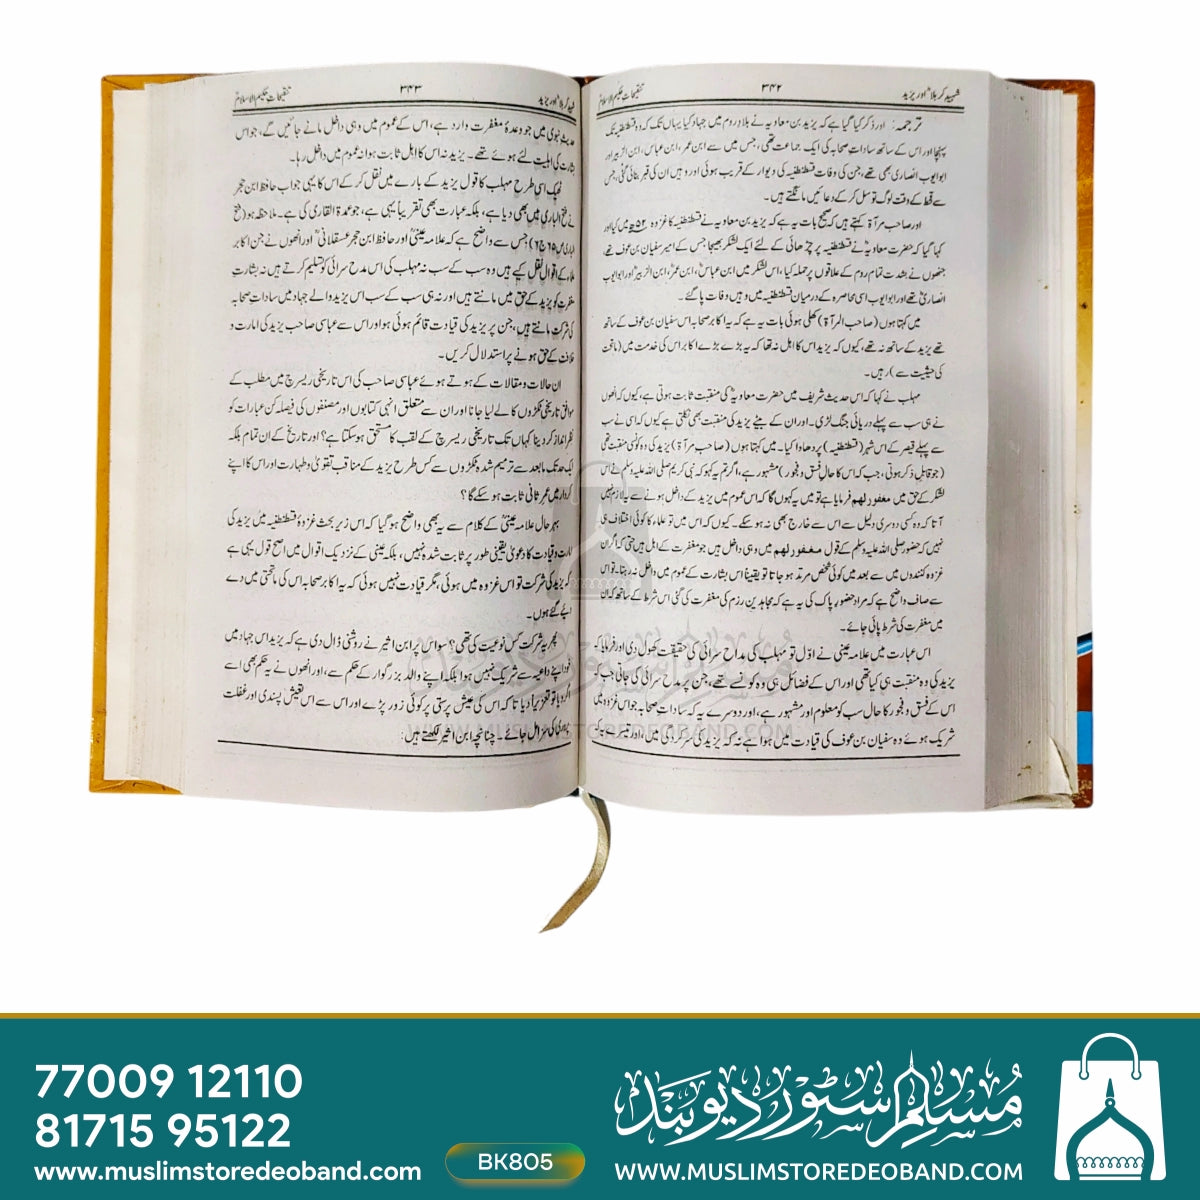 شہید کربلاؓ اور یزید ۳۴۲ تنقیحاتِ حکیم الاسلامؒ
ترجمہ: اور ذکر کیا گیا ہے کہ یزید بن معاویہ نے بلادِ روم میں جہاد کیا یہاں تک کہ وہ قسطنطنیہ تک
پہنچا اور اس کے ساتھ ساداتِ صحابہ کی ایک جماعت تھی، جس میں سے ابن عمر، ابن عباس، ابن الزبیر اور
ابو ایوب انصاری بھی تھے، جن کی وفات قسطنطنیہ کی دیوار کے قریب ہوئی اور وہیں ان کی قبر بنائی گئی، جس
سے قحط کے وقت لوگ توسل کر کے دعائیں مانگتے ہیں۔
اور صاحب مرآۃ کہتے ہیں کہ صحیح بات یہ ہے کہ یزید بن معاویہ نے قسطنطنیہ کا غزوہ ۵۲ھ میں کیا اور
کہا گیا کہ حضرت معاویہؓ نے قسطنطنیہ پر چڑھائی کے لئے ایک لشکر بھیجا جس کے امیر سفیان بن عوف تھے،
جنھوں نے بشدت تمام روم کے علاقوں پر حملہ کیا، اس لشکر میں ابن عباسؓ، ابن عمرؓ، ابن الزبیرؓ اور ابو ایوب
انصاریؓ تھے اور ابو ایوب اسی محاصرہ کے درمیان قسطنطنیہ میں وہیں وفات پا گئے۔
میں کہتا ہوں (صاحب المرآۃ) کھلی ہوئی بات یہ ہے کہ یہ اکابر صحابہ اس سفیان بن عوف کے ساتھ
تھے یزید کے ساتھ نہ تھے، کیوں کہ یزید اس کا اہل نہ تھا کہ یہ بڑے بڑے اکابر اس کی خدمت میں (ماتحت
کی حیثیت سے) رہیں۔
مہلب نے کہا کہ اس حدیث شریف میں حضرت معاویہؓ کی منقبت ثابت ہوتی ہے، کیوں کہ انھوں
نے ہی سب سے پہلے دریائی جنگ لڑی۔ اور ان کے بیٹے یزید کی منقبت بھی نکلتی ہے کیوں کہ اسی نے سب
سے پہلے قیصر کے اس شہر (قسطنطنیہ) پر دھاوا کیا۔ میں کہتا ہوں (صاحب مرآۃ) یزید کی وہ کونسی منقبت تھی
(جو قابل ذکر ہوتی، جب کہ اس کا حال فسق و فجور) مشہور ہے، اگر تم یہ کہو کہ نبی کریم صلی اللہ علیہ وسلم نے اس
لشکر کے حق میں مغفور لهم فرمایا ہے تو میں یہ کہوں گا کہ اس عموم میں یزید کے داخل ہونے سے یہ لازم نہیں
آتا کہ وہ کسی دوسری دلیل سے اس سے خارج بھی نہ ہو سکے۔ کیوں کہ اس میں تو علماء کا کوئی اختلاف ہی
نہیں کہ حضور صلی اللہ علیہ وسلم کے قول مغفور لهم میں وہی داخل ہیں جو مغفرت کے اہل ہیں حتیٰ کہ اگر ان
غزوہ کنندوں میں سے بعد میں کوئی شخص مرتد ہو جاتا تو یقیناً اس بشارت کے عموم میں داخل نہ رہتا۔ تو اس
سے صاف واضح ہے کہ مراد حضور پاک کی یہ ہے کہ مجاہدین رزم کی مغفرت کی گئی اس شرط کے ساتھ کہ ان
میں مغفرت کی شرط پائی جائے۔
اس عبارت میں علامہ عینی نے اوّل تو مہلب کی مداح سرائی کی حقیقت کھول دی اور فرمایا کہ
یزید کی وہ منقبت ہی کیا تھی اور اس کے فضائل ہی وہ کونسے تھے، جن پر مداح سرائی کی جاتی جب کہ
اس کے فسق و فجور کا حال سب کو معلوم اور مشہور ہے، اور دوسرے یہ کہ سادات صحابہ جو اس غزوہ میں
شریک ہوئے وہ سفیان بن عوف کی قیادت میں ہوا ہے نہ کہ یزید کی سرکردگی میں، اور تیسرے یہ کہ
شہید کربلاؓ اور یزید ۳۴۳ تنقیحاتِ حکیم الاسلامؒ
حدیث نبوی میں جو وعدۂ مغفرت وارد ہے، اس کے عموم میں وہی داخل مانے جائیں گے، جو اس
بشارت کی اہلیت لئے ہوئے تھے۔ یزید نہ اس کا اہل ثابت ہوا نہ عموم میں داخل رہا۔
ٹھیک اسی طرح مہلب کا قول یزید کے بارے میں نقل کر کے اس کا یہی جواب حافظ ابن حجر
نے فتح الباری میں بھی دیا ہے، بلکہ عبارت بھی تقریباً یہی ہے، جو عمدۃ القاری کی ہے۔ ملاحظہ ہو (فتح
الباری ص ۶۵ ج ۶) جس سے واضح ہے کہ علامہ عینیؒ اور حافظ ابن حجر عسقلانیؒ اور انھوں نے جن اکابر
علماء کے اقوال نقل کیے ہیں وہ سب کے سب نہ مہلب کی اس مدح سرائی کو تسلیم کرتے ہیں نہ بشارتِ
مغفرت کو یزید کے حق میں مانتے ہیں اور نہ ہی سب کے سب اس یزید والے جہاد میں سادات صحابہ
کی شرکت مانتے ہیں، جن پر یزید کی قیادت قائم ہوئی ہو اور اس سے عباسی صاحب یزید کی امارت و
خلافت کے حق ہونے پر استدلال کریں۔
ان حالات و مقالات کے ہوتے ہوئے عباسی صاحب کی اس تاریخی ریسرچ میں مطلب کے
موافق تاریخی ٹکڑوں کا لے لیا جانا اور ان سے متعلق انہی کتابوں اور مصنفوں کی فیصلہ کن عبارات کو
نظر انداز کر دینا کہاں تک تاریخی ریسرچ کے لقب کا مستحق ہو سکتا ہے؟ اور تاریخ کے ان تمام بلکہ
ایک حد تک مابعد سے ترمیم شدہ ٹکڑوں سے کس طرح یزید کے مناقب تقویٰ و طہارت اور اس کا اپنے
کردار میں عمر ثانی ثابت ہو سکے گا؟
بہر حال علامہ عینیؒ کے کلام سے یہ بھی واضح ہو گیا کہ اس زیر بحث غزوۂ قسطنطنیہ میں یزید کی
امارت و قیادت کا دعویٰ یقینی طور پر ثابت شدہ نہیں، بلکہ عینی کے نزدیک اقوال میں اصح قول یہی ہے
کہ یزید کی شرکت تو اس غزوہ میں ہوئی، مگر قیادت نہیں ہوئی کہ یہ اکابر صحابہ اس کی ماتحتی میں دے
دیئے گئے ہوں۔
پھر یہ شرکت کس نوعیت کی تھی؟ سو اس پر ابن اثیر نے روشنی ڈال دی ہے کہ یزید اس جہاد میں
خود اپنے داعیہ سے شریک نہیں ہوا بلکہ اپنے والد بزرگوار کے حکم سے، اور انھوں نے یہ حکم بھی اسے
اگر دیا تو تعزیراً دیا تا کہ اس کی عیش پرستی پر کوئی زور پڑے اور اس سے اس تعیش پسندی اور غفلت
کی سزا مل جائے۔ چنانچہ ابن اثیر لکھتے ہیں:
مسلم سٹور دیوبند
WWW.MUSLIMSTOREDEOBAND.COM
77009 12110
81715 95122
www.muslimstoredeoband.com
BK805
مسلم سٹور دیوبند
WWW.MUSLIMSTOREDEOBAND.COM